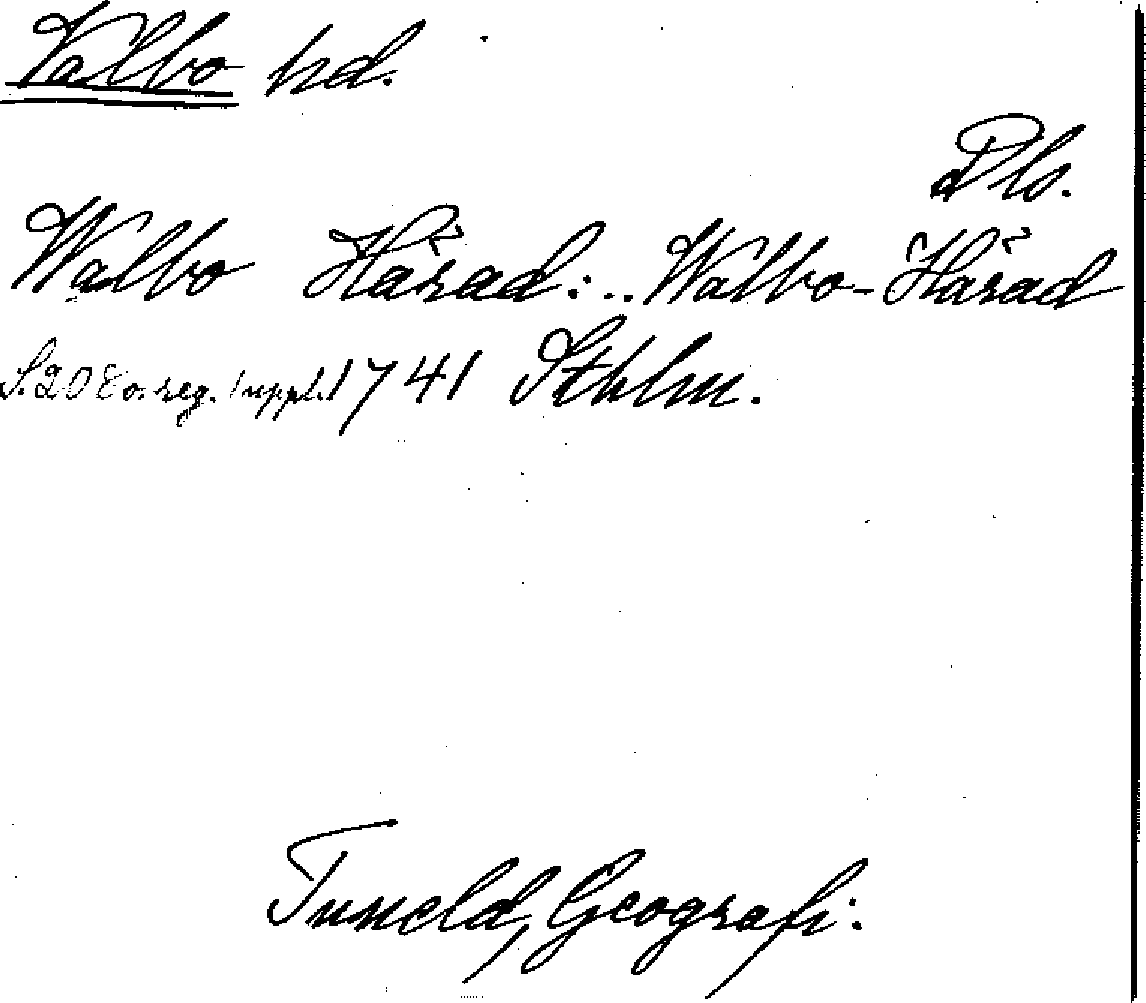 Valbo hd.
Dls.
Walbo Härad: .. Walbo-Härad
S. 208 o. reg. suppl. 1741 Sthlm.
Tuneld, Geografi.